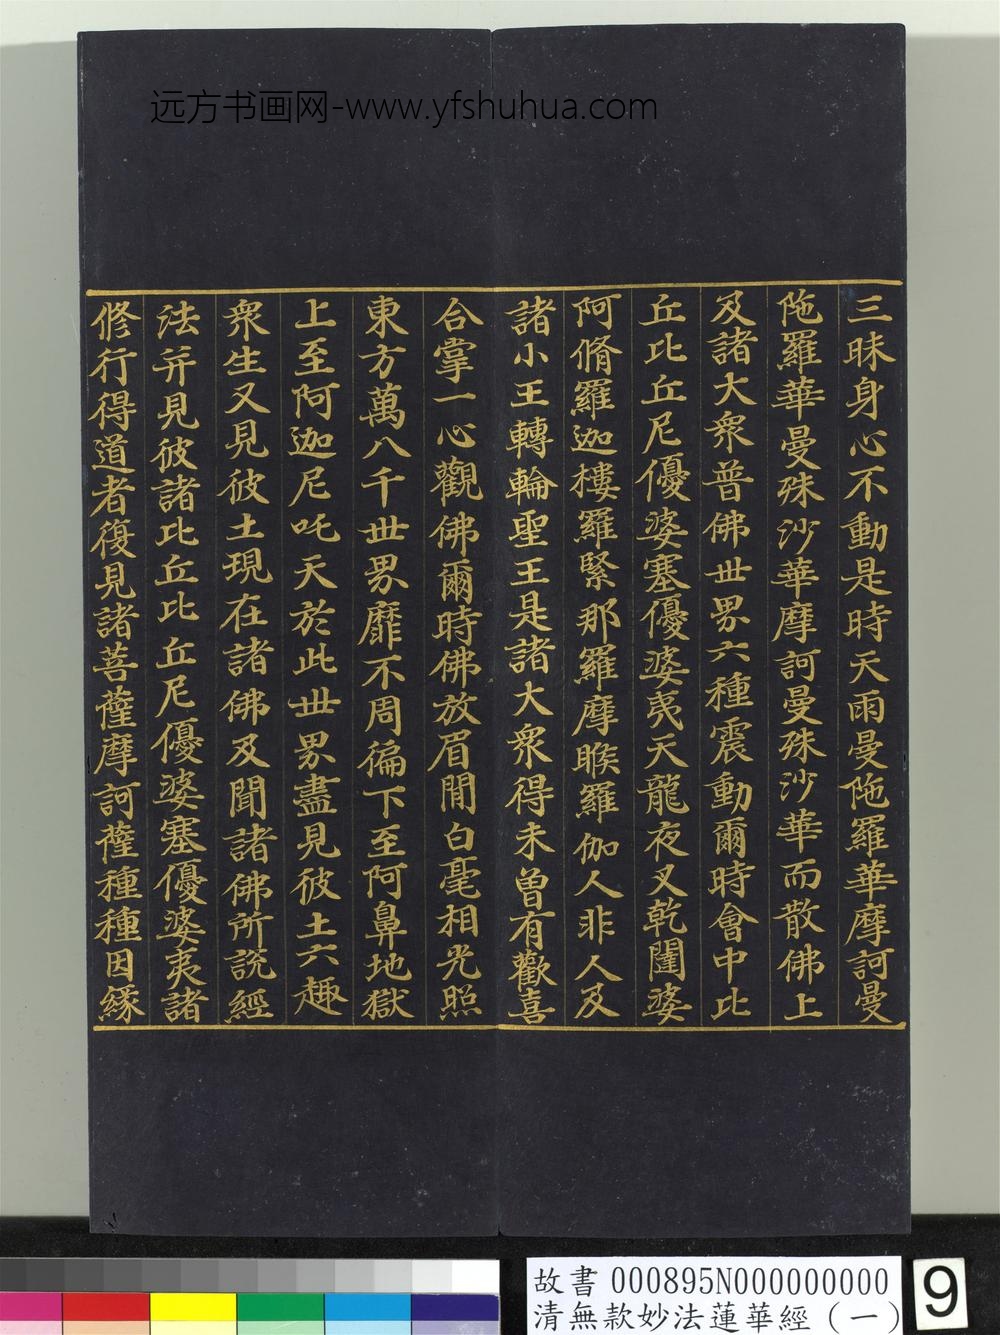 远方书画网-www.yfshuhua.com
三昧身心不動是時天雨曼陁羅華摩訶曼
陁羅華曼殊沙華摩訶曼殊沙華而散佛上
及諸大衆普佛世界六種震動爾時會中比
丘比丘尼優婆塞優婆夷天龍夜叉乾闥婆
阿脩羅迦樓羅緊那羅摩睺羅伽人非人及
諸小王轉輪聖王是諸大衆得未曾有歡喜
合掌一心觀佛爾時佛放眉間白毫相光照
東方萬八千世界靡不周徧下至阿鼻地獄
上至阿迦尼吒天於此世界盡見彼土六趣
衆生又見彼土現在諸佛及聞諸佛所說經
法并見彼諸比丘比丘尼優婆塞優婆夷諸
修行得道者復見諸菩薩摩訶薩種種因緣
故書 000895N000000000
清無款妙法蓮華經(一)
9